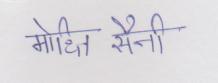 मोहित सैनी